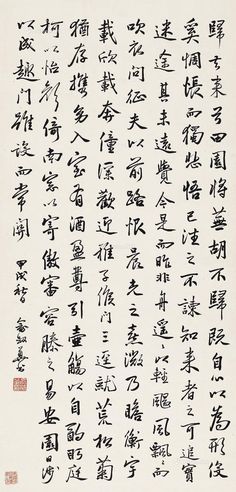 歸去來兮田園將蕪胡不歸既自心以為形役
奚惆悵而獨悲悟已往之不諫知來者之可追實
迷途其未遠覺今是而昨非舟遙遙以輕颺風飄飄而
吹衣問征夫以前路恨晨光之熹微乃瞻衡宇
載欣載奔僮僕歡迎稚子候門三逕就荒松菊
猶存攜幼入室有酒盈尊引壺觴以自酌眄庭
柯以怡顏倚南窗以寄傲審容膝之易安園日涉
以成趣門雖設而常關 甲戌秋日